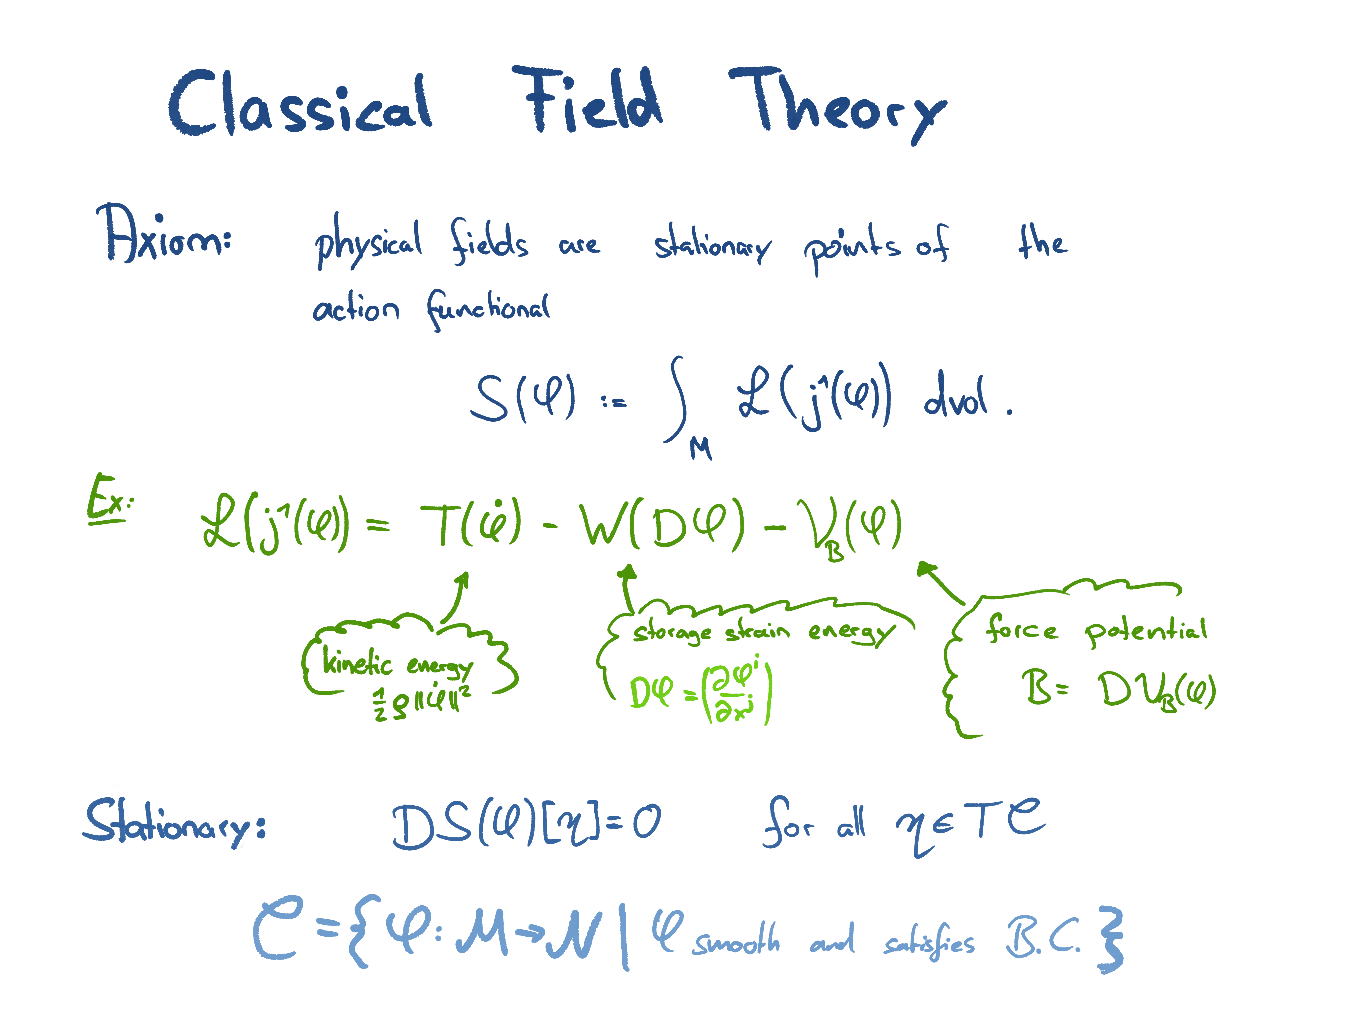 Classical Field Theory
Axiom: physical fields are stationary points of the
action functional
S(φ) := ∫_M ℒ(j¹(φ)) dvol.
Ex: ℒ(j¹(φ)) = T(φ̇) - W(Dφ) - V_B(φ)
kinetic energy
½ρ‖φ̇‖²
storage strain energy
Dφ = (∂φⁱ/∂xʲ)
force potential
B = DV_B(φ)
Stationary: DS(φ)[η]=0 for all η∈T𝒞
𝒞 = {φ: M→N | φ smooth and satisfies B.C.}